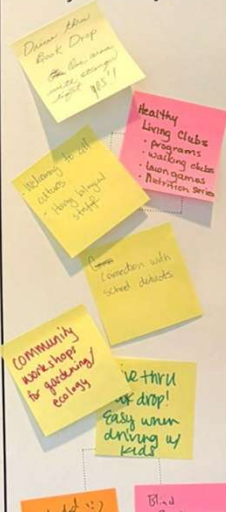 Drive thru
Book Drop
yes!!
Healthy
Living Clubs
• programs
• walking clubs
• lawn games
• Nutrition series
Welcoming to all
cultures
• Hiring bilingual
staff
Connection with
school districts
Community
workshops
for gardening/
ecology
ve thru
drop!
Easy when
driving w/
kids
Blind